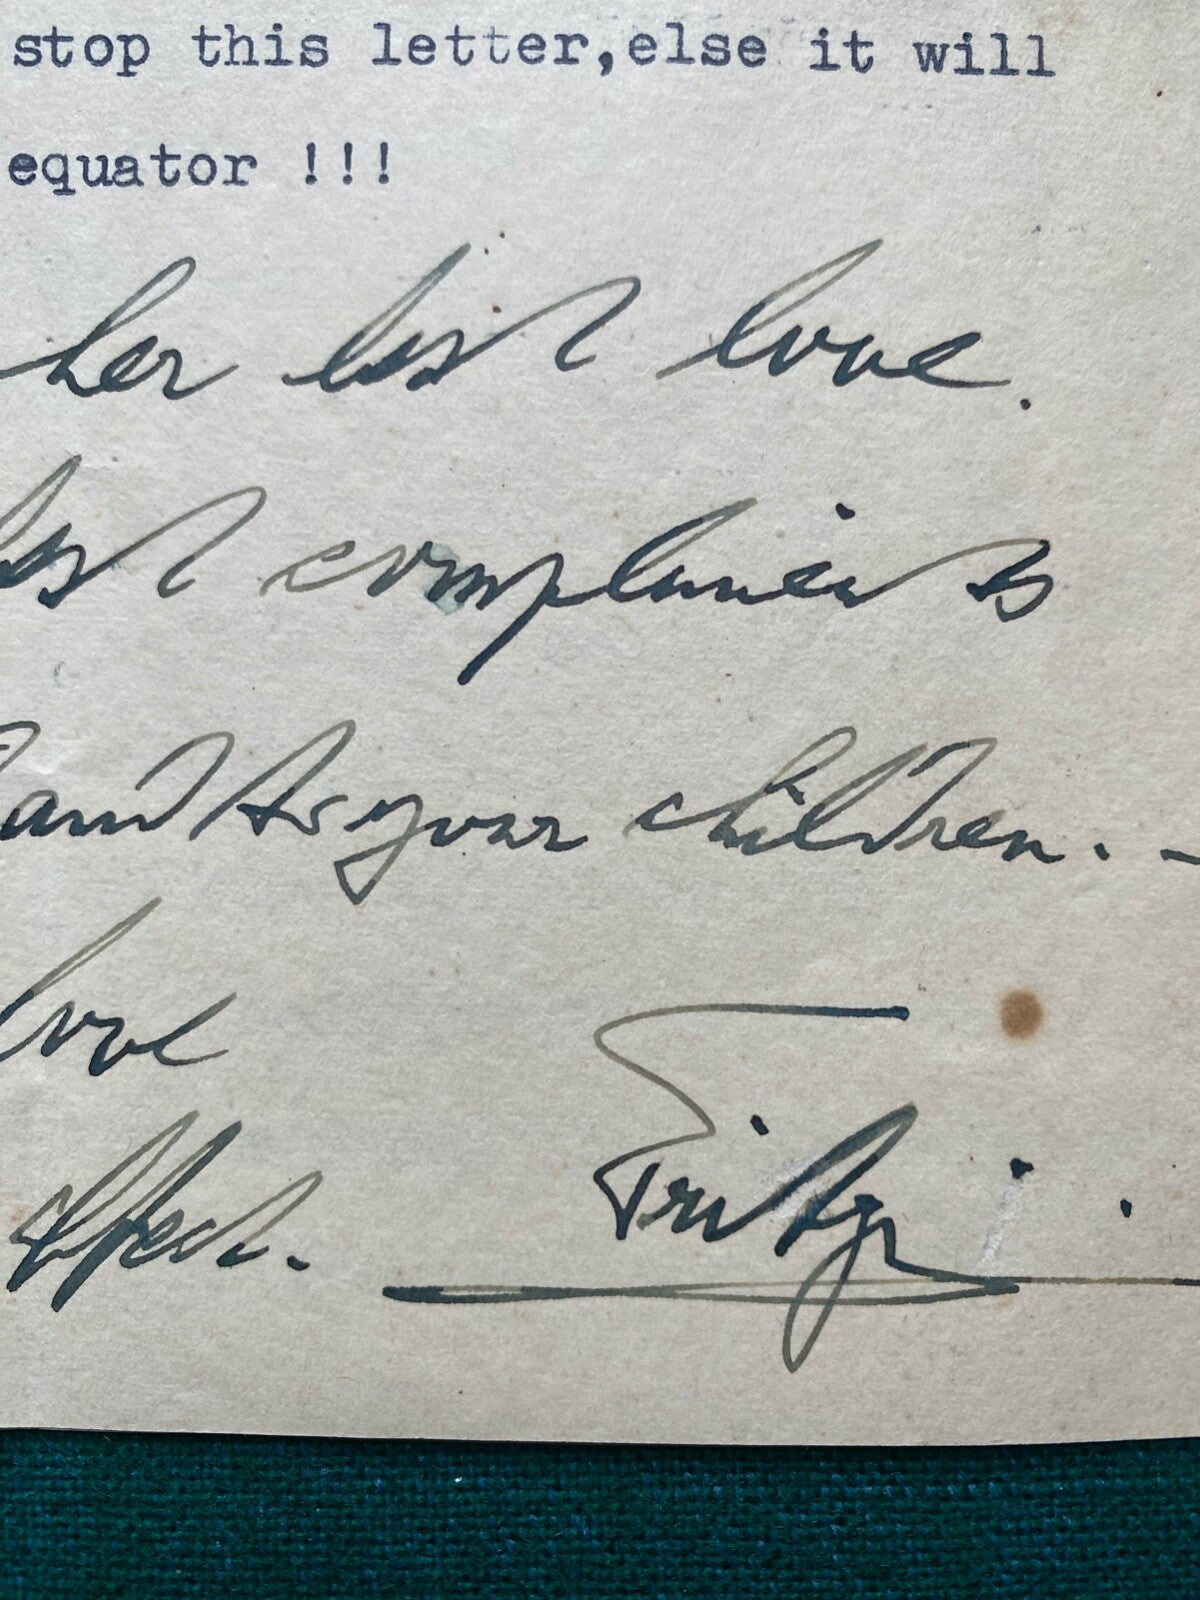 stop this letter,else it will
equator !!!
her best love.
best compliments
and to your children. -
love
Fritz